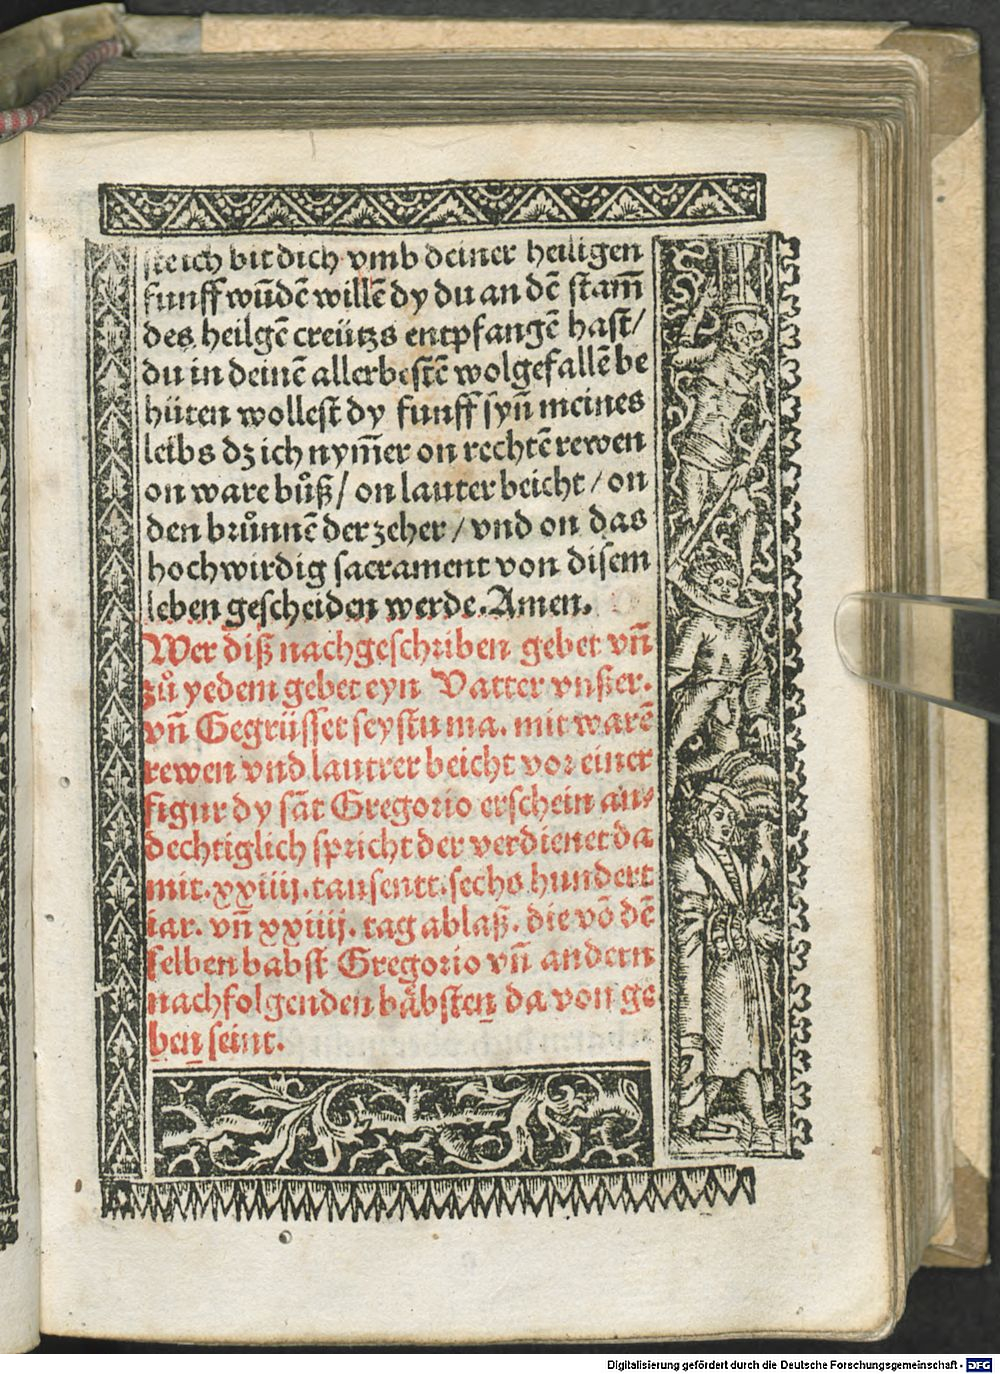 ste ich bit dich vmb deiner heiligen
funff wūdē willē dy du an dē stam̄
des heilgē creützs entpfangē hast/
du in deinē allerbestē wolgefallē be
hüten wollest dy funff syn̄ meines
leibs dz ich nym̄er on rechtē rewen
on ware bůß/ on lauter beicht/ on
den brůnnē der zeher/ vnd on das
hochwirdig sacrament von disem
leben gescheiden werde. Amen.
Wer diß nachgeschriben gebet vn̄
zů yedem gebet eyn Vatter vnßer.
vn̄ Gegrüsset seystu ma. mit warē
rewen vnd lautrer beicht vor einer
figur dy sāt Gregorio erschein an⸗
dechtiglich spricht der verdienet da
mit. xxiiij. tausentt. sechs hundert
iar. vn̄ xxiiij. tag ablaß. die vō dē
selben babst Gregorio vn̄ andern
nachfolgenden bäbsten da von ge
ben seint.
Digitalisierung gefördert durch die Deutsche Forschungsgemeinschaft - DFG